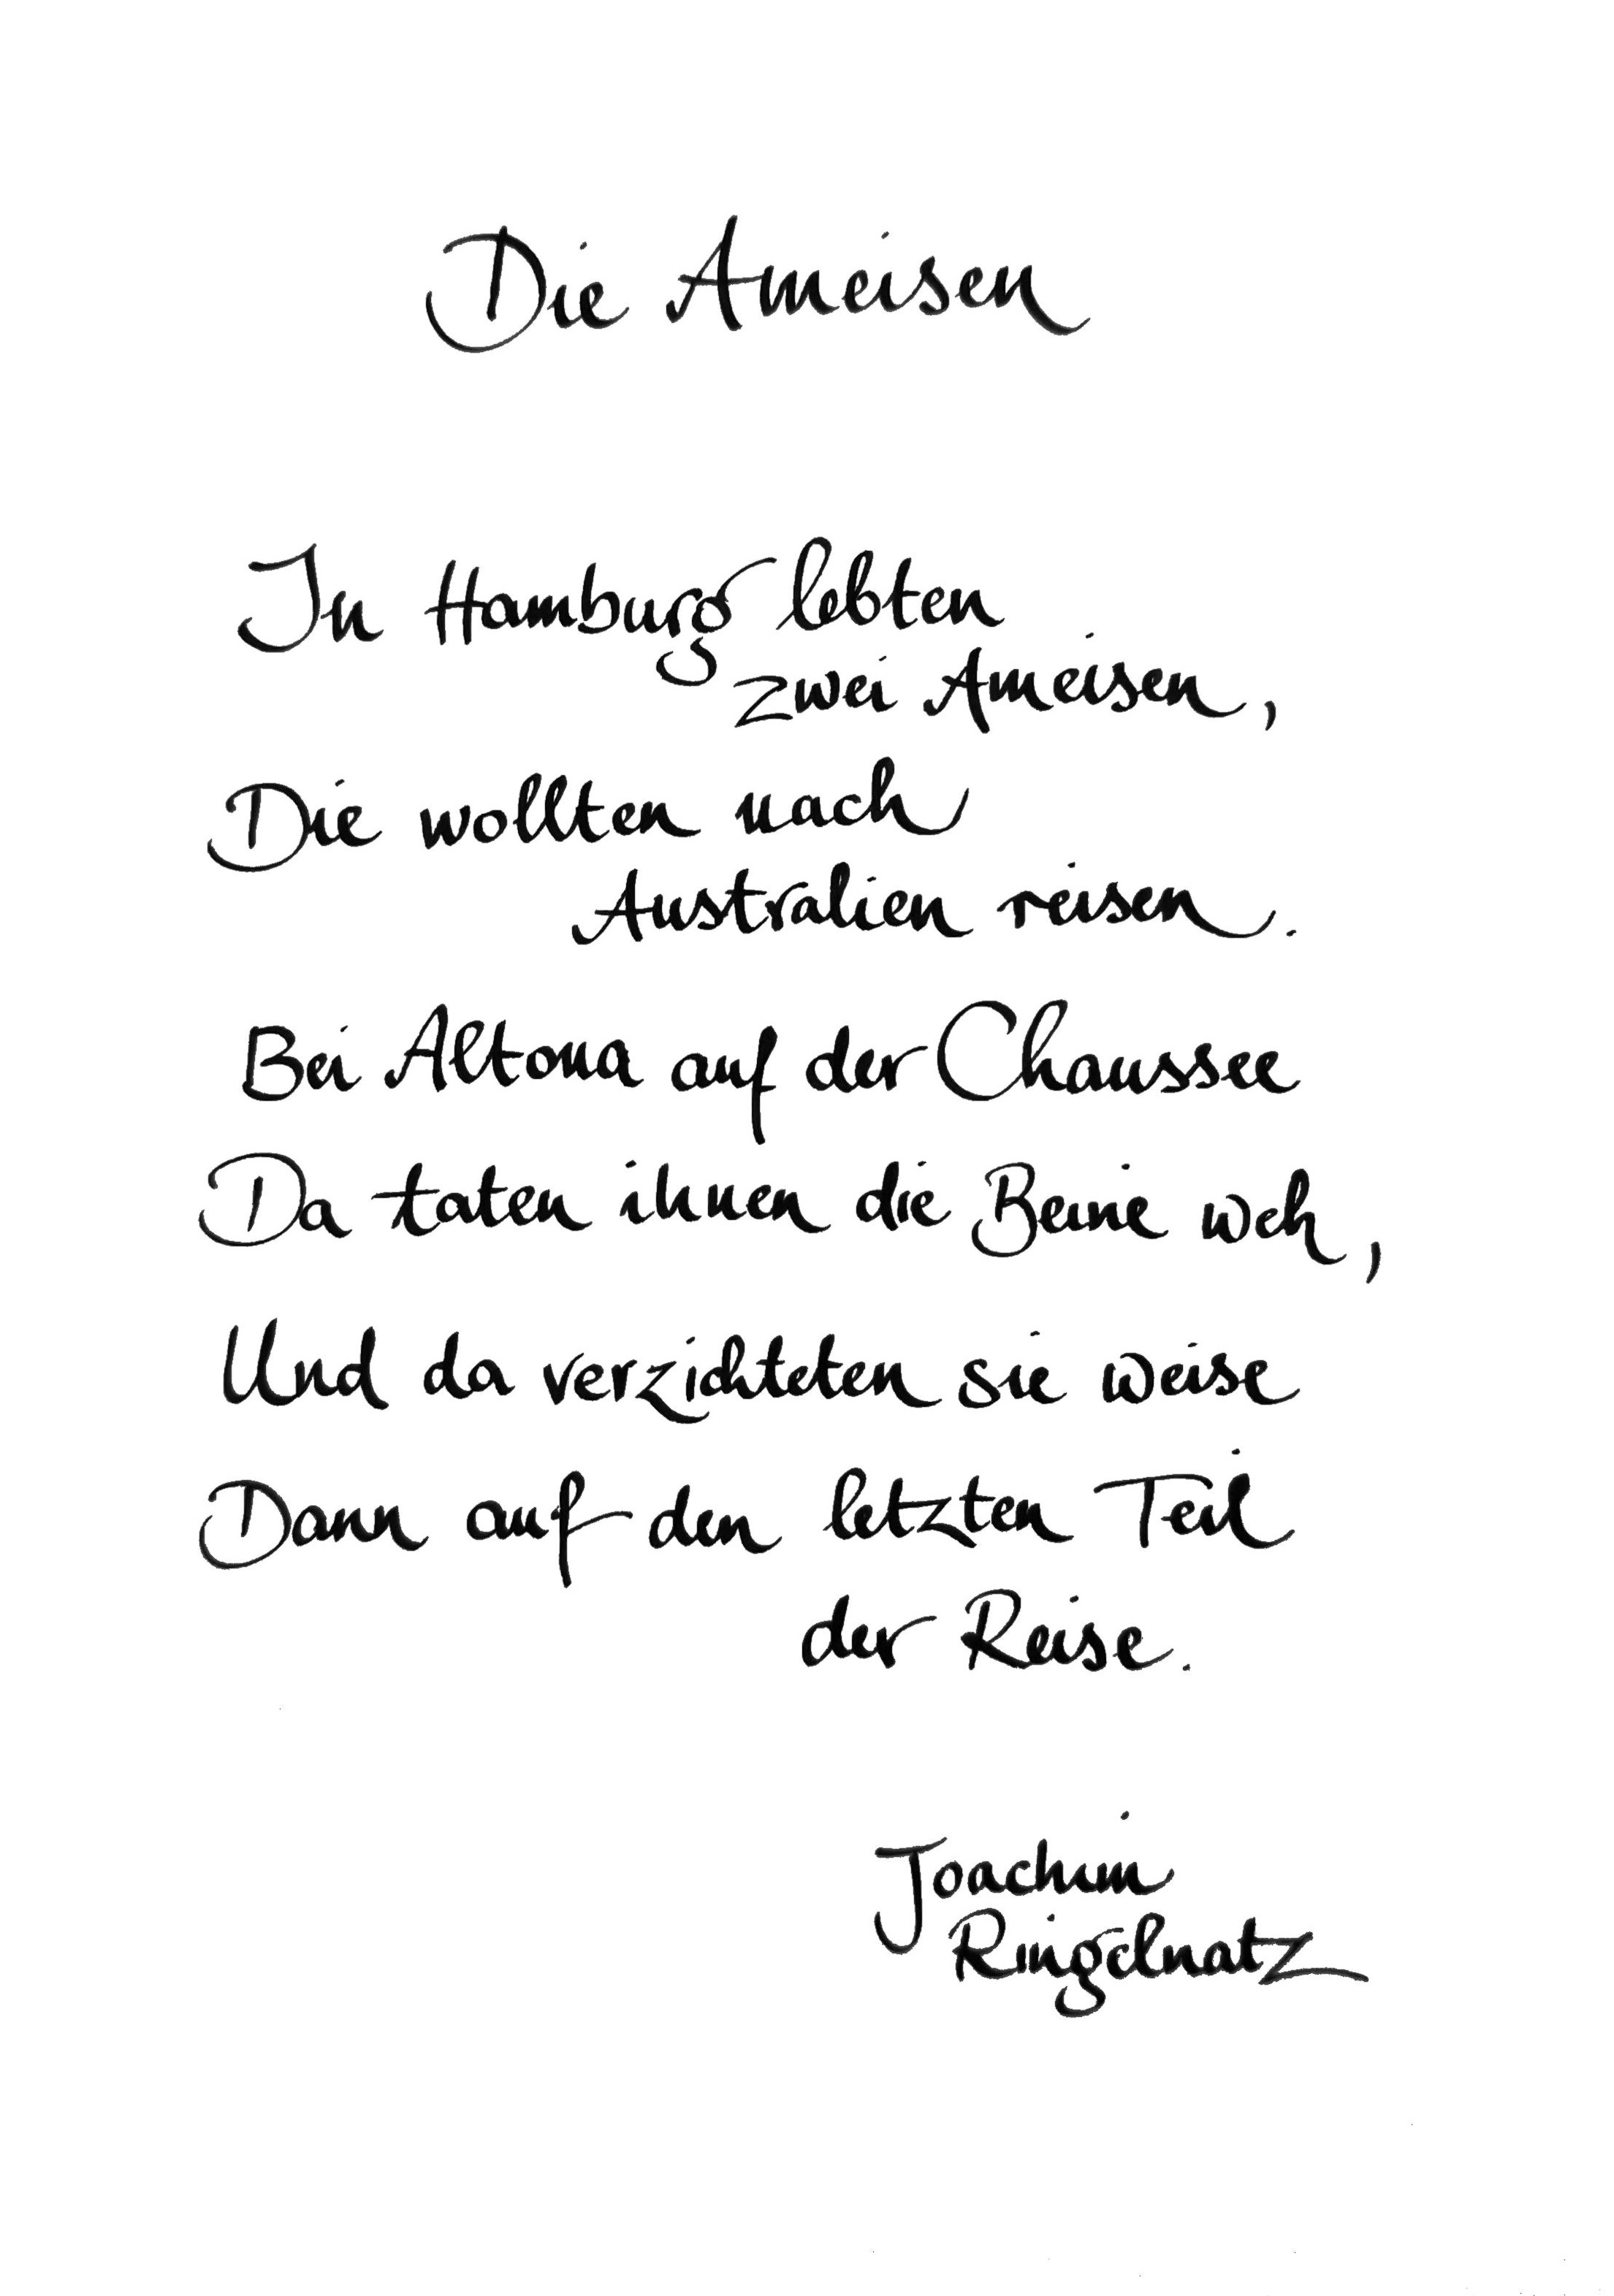 Die Ameisen
In Hamburg lebten
zwei Ameisen,
Die wollten nach
Australien reisen.
Bei Altona auf der Chaussee
Da taten ihnen die Beine weh,
Und da verzichteten sie weise
Dann auf den letzten Teil
der Reise.
Joachim
Ringelnatz